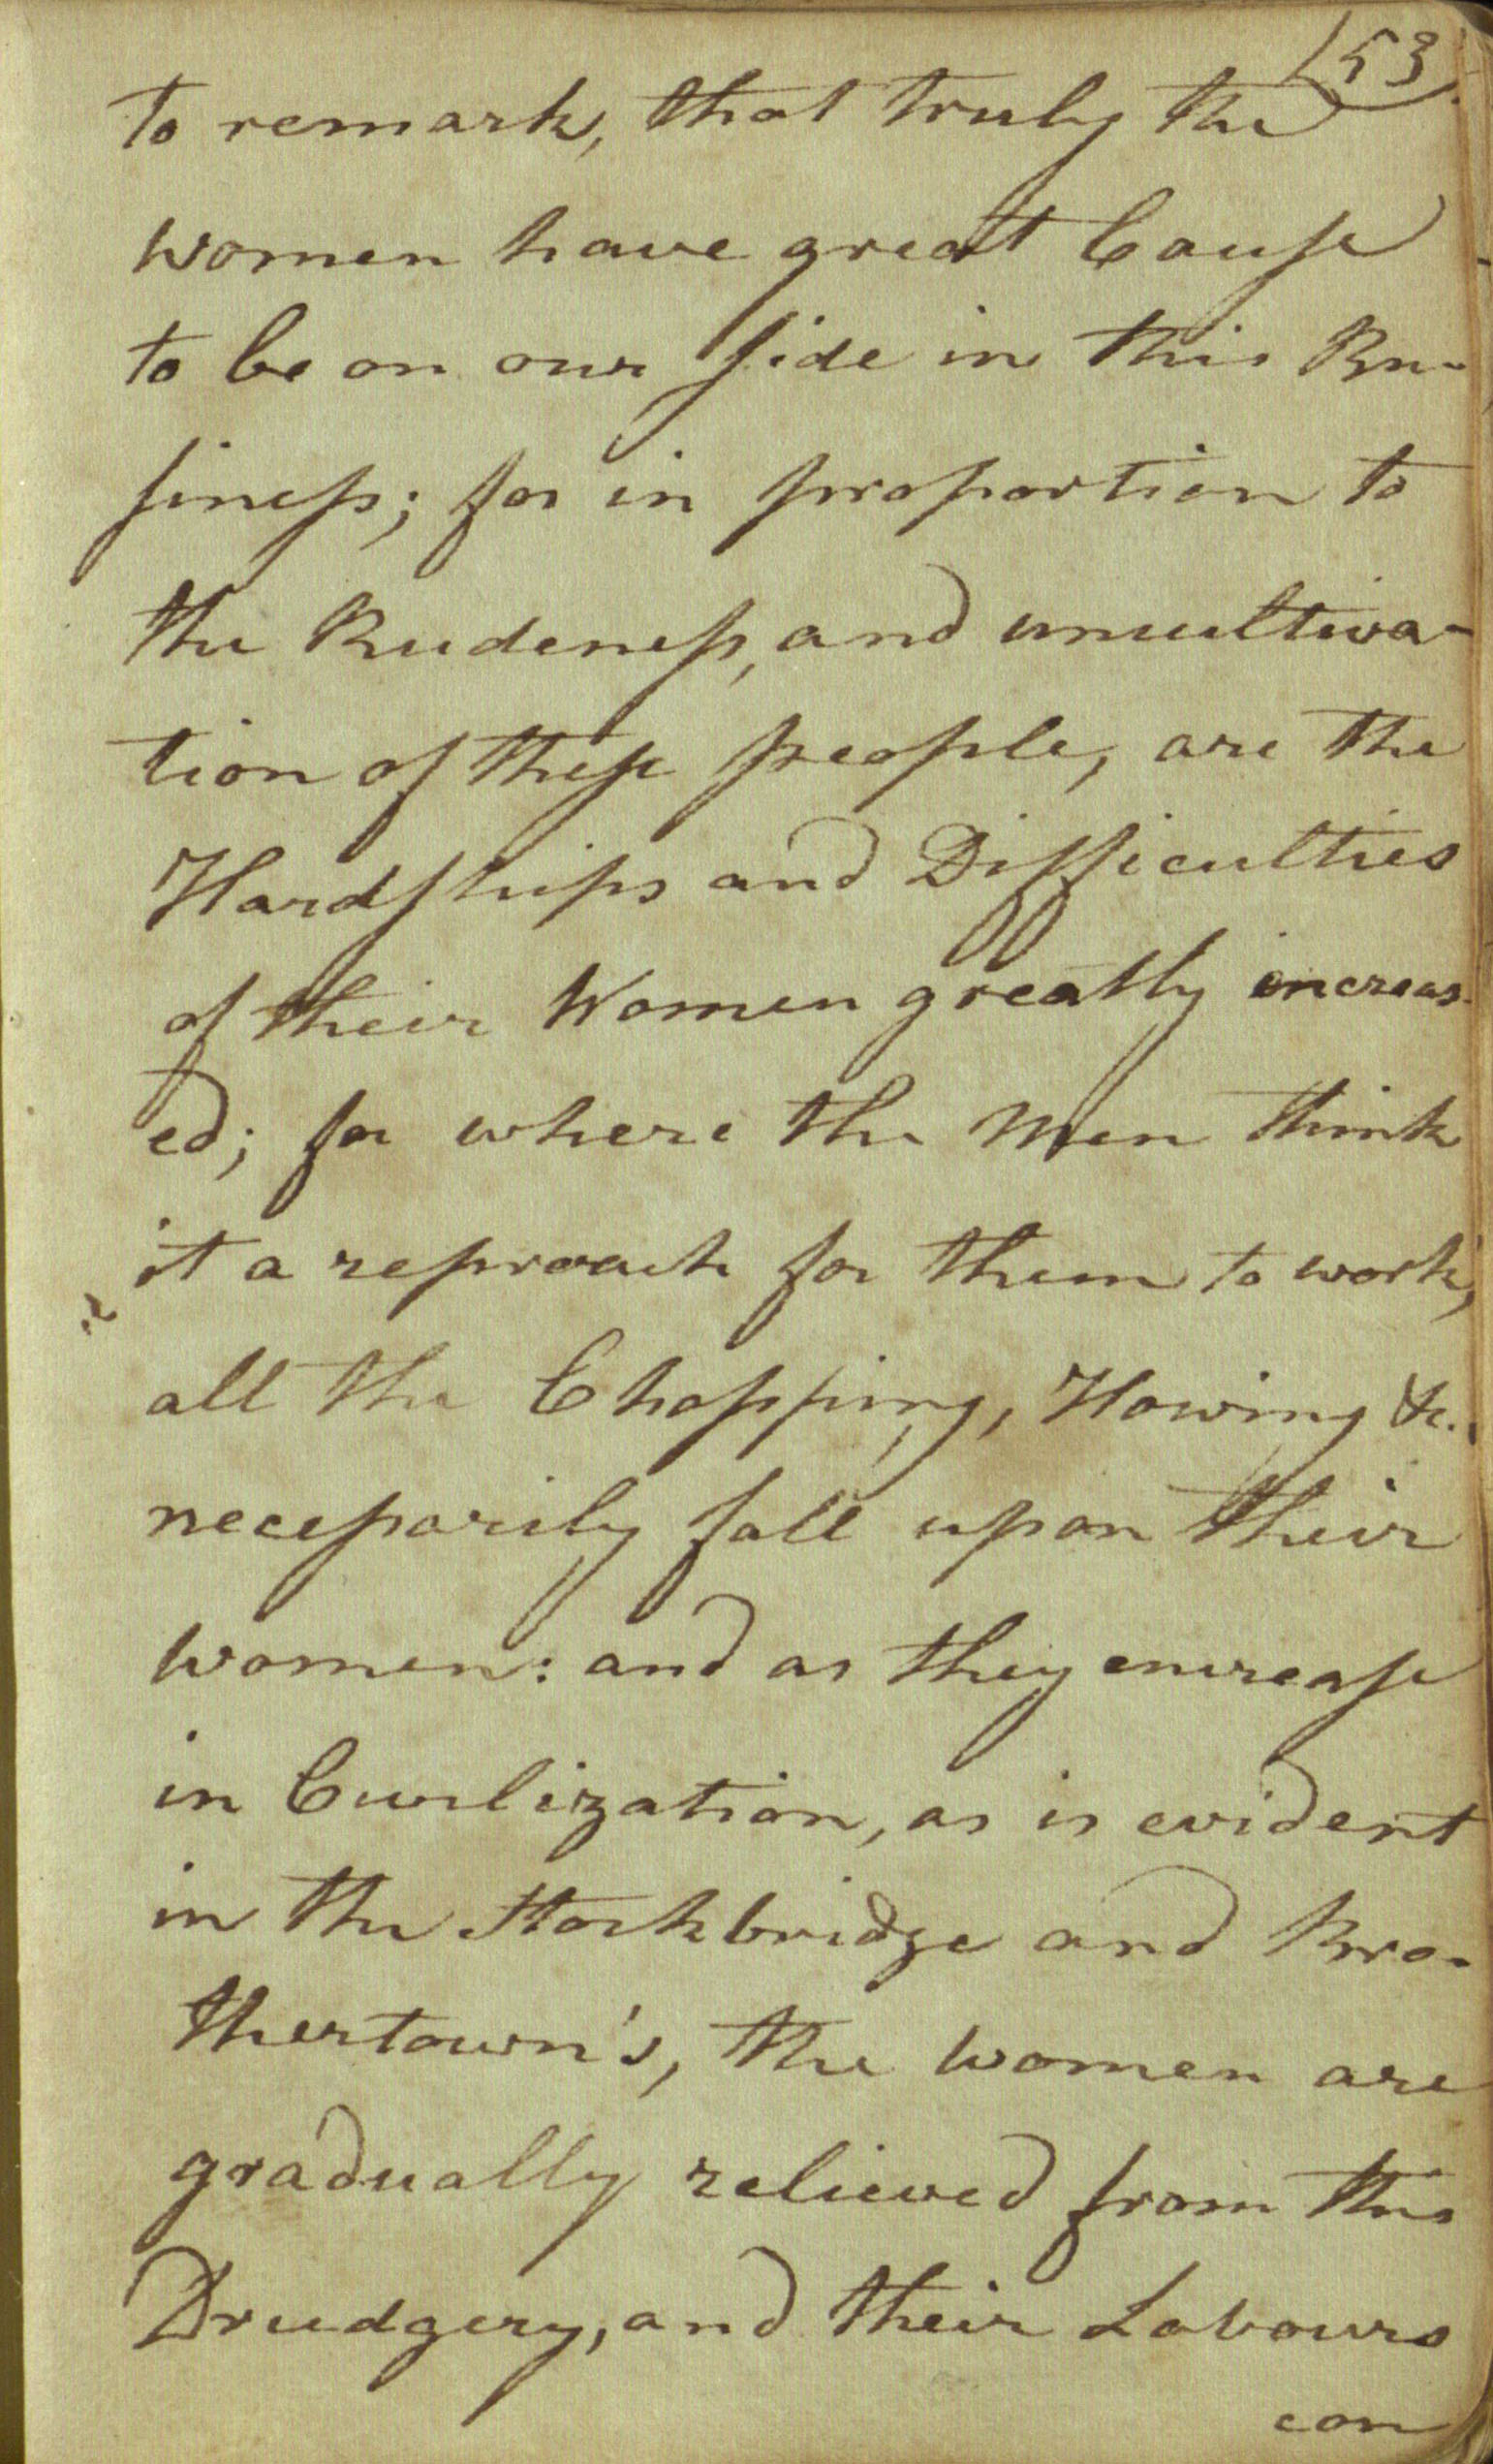 153
to remark, that truly the
women have great Cause
to be on our side in this Bu-
siness; for in proportion to
the Rudeness, and uncultiva-
tion of these people, are the
Hardships and Difficulties
of their Women greatly increas-
ed; for where the Men think
it a reproach for them to work,
all the Chopping, Howing &c.
necessarily fall upon their
women: and as they encrease
in Civilization, as is evident
in the Stockbridge and Bro-
thertown's, the women are
gradually relieved from this
Drudgery, and their Labours
con